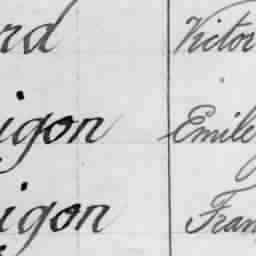 rd Victor
igon Emile
igon Fran